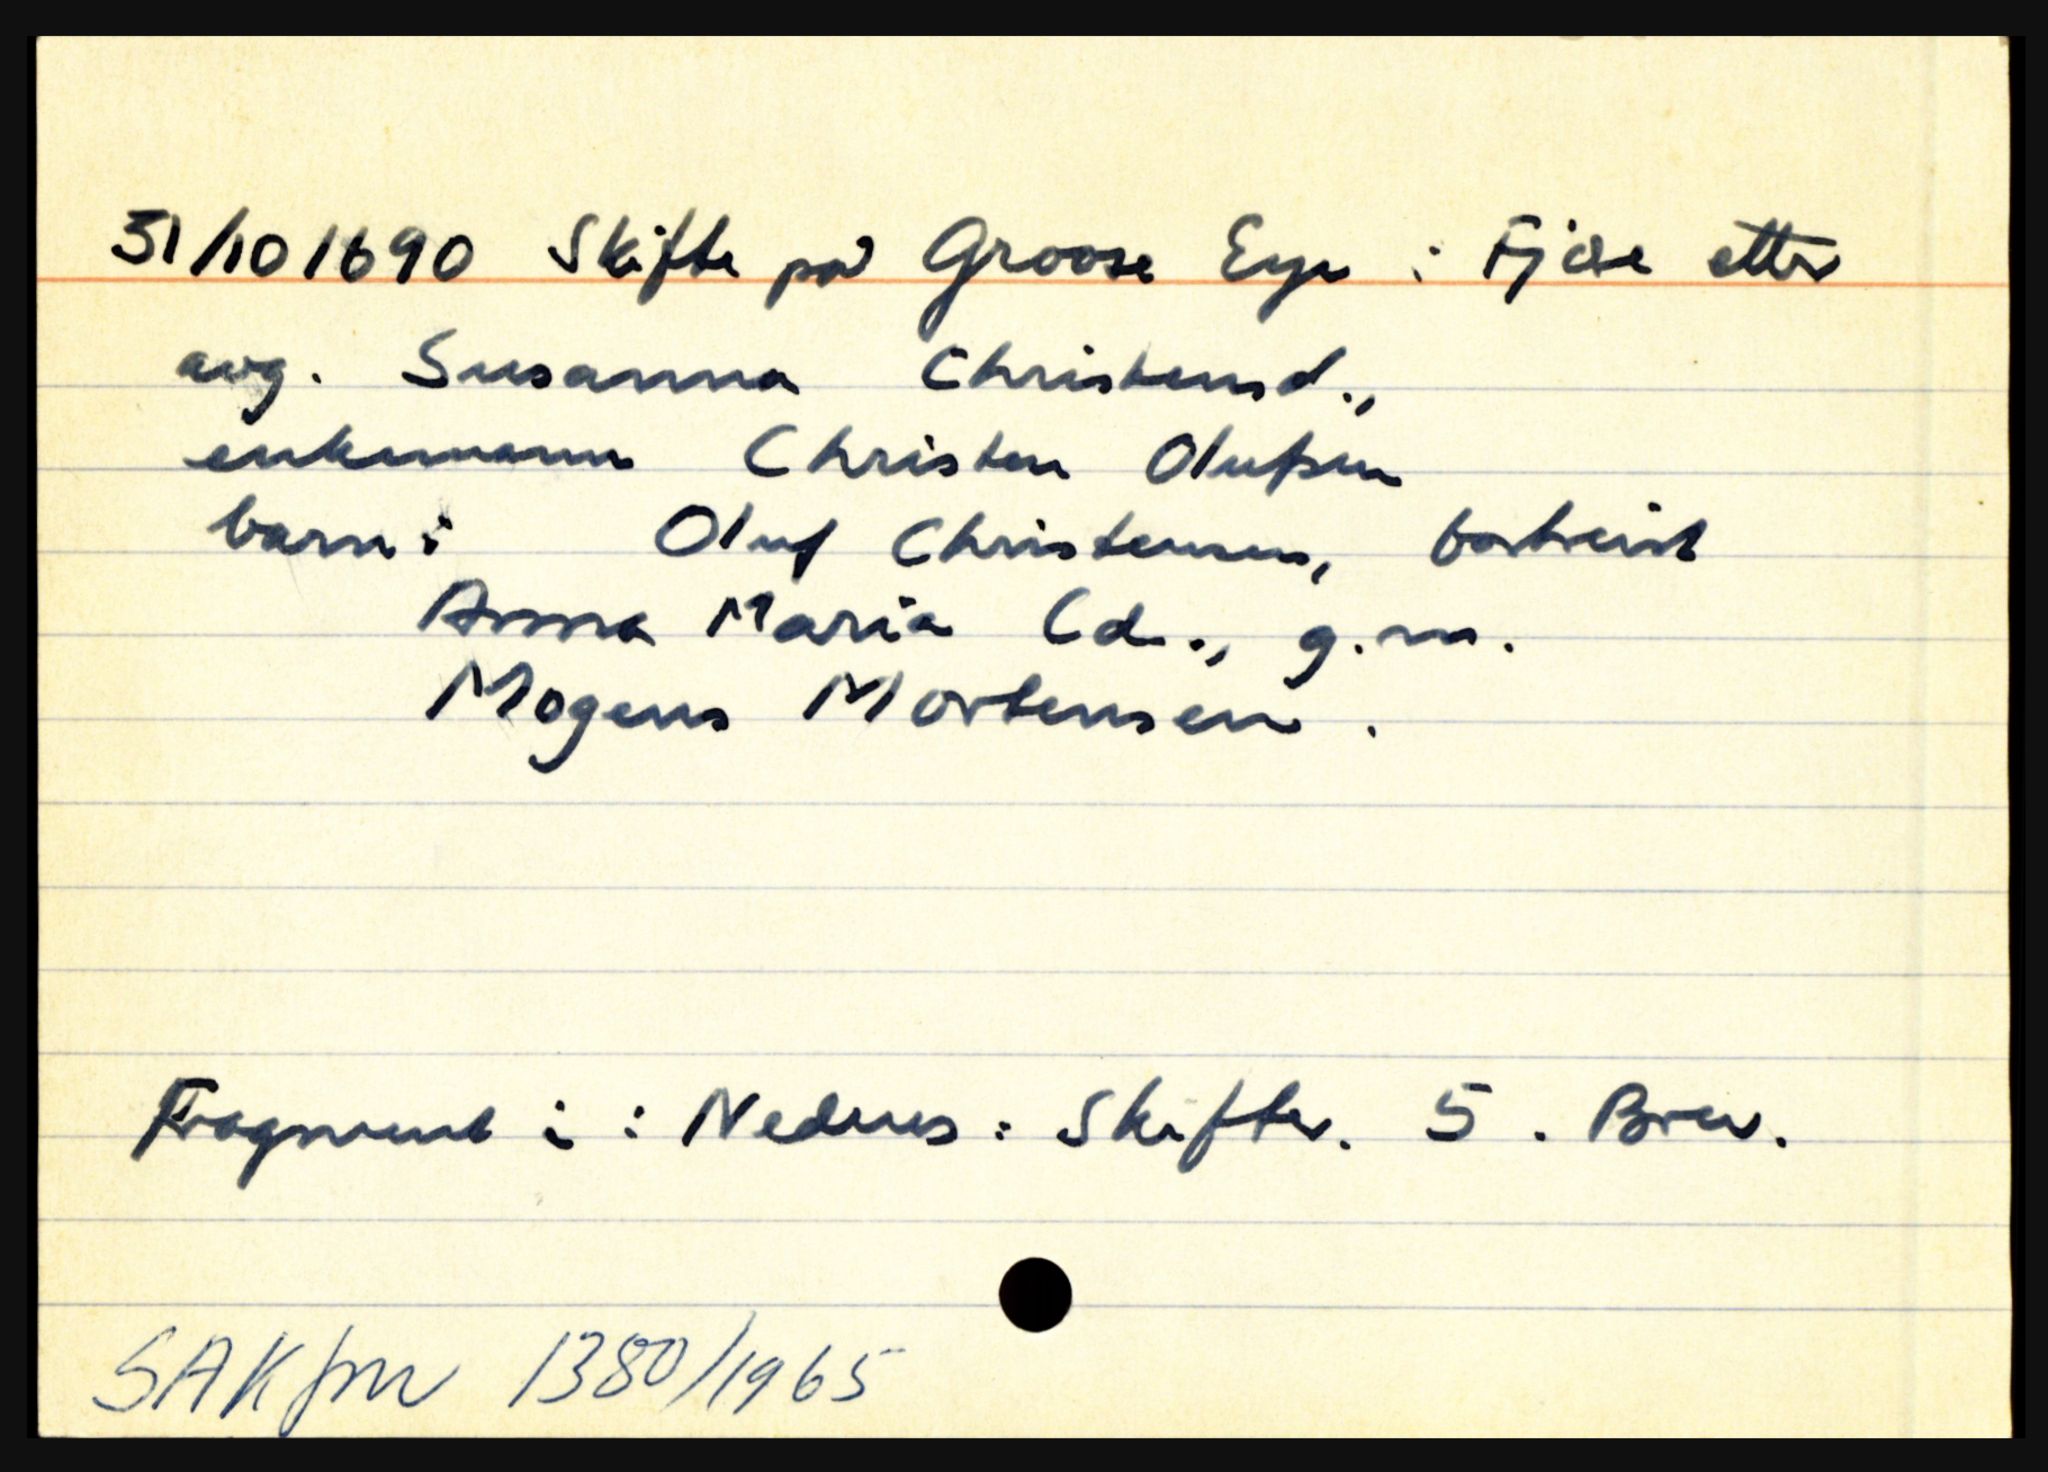 31/10 1690 Skifte på Groose Eye i Fjære etter
avg. Susanna Christensd.,
enkemann Christen Olufsen
barn: Oluf Christensen, bortreist
Anna Maria Cd., g.m.
Mogens Mortensen.
Fragment i : Nedenes: Skifter. 5. Brev.
SAK jnr 1380/1965